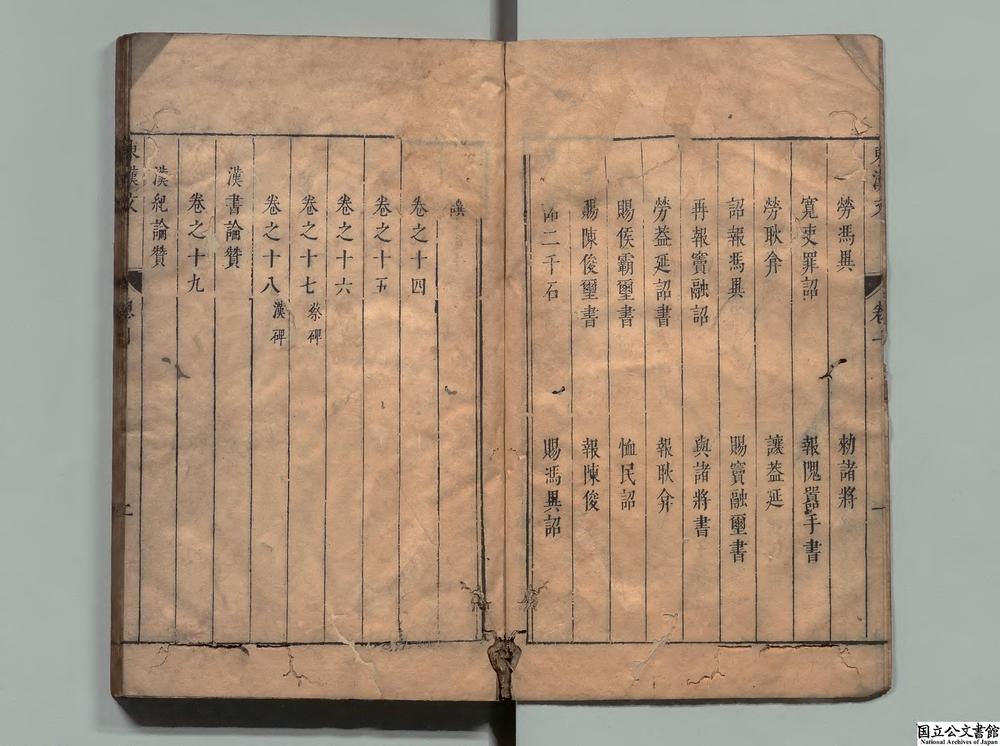 東漢文 卷一 一
勞馮異 勅諸將
寬吏罪詔 報隗囂手書
勞耿弇 讓葢延
詔報馮異 賜竇融璽書
再報竇融詔 與諸將書
勞葢延詔書 報耿弇
賜侯霸璽書 恤民詔
賜陳俊璽書 報陳俊
二千石 賜馮異詔
卷之十四
卷之十五
卷之十六
卷之十七 蔡碑
卷之十八 漢碑
漢書論贊
卷之十九
漢紀論贊
東漢文 總目 二
国立公文書館
National Archives of Japan